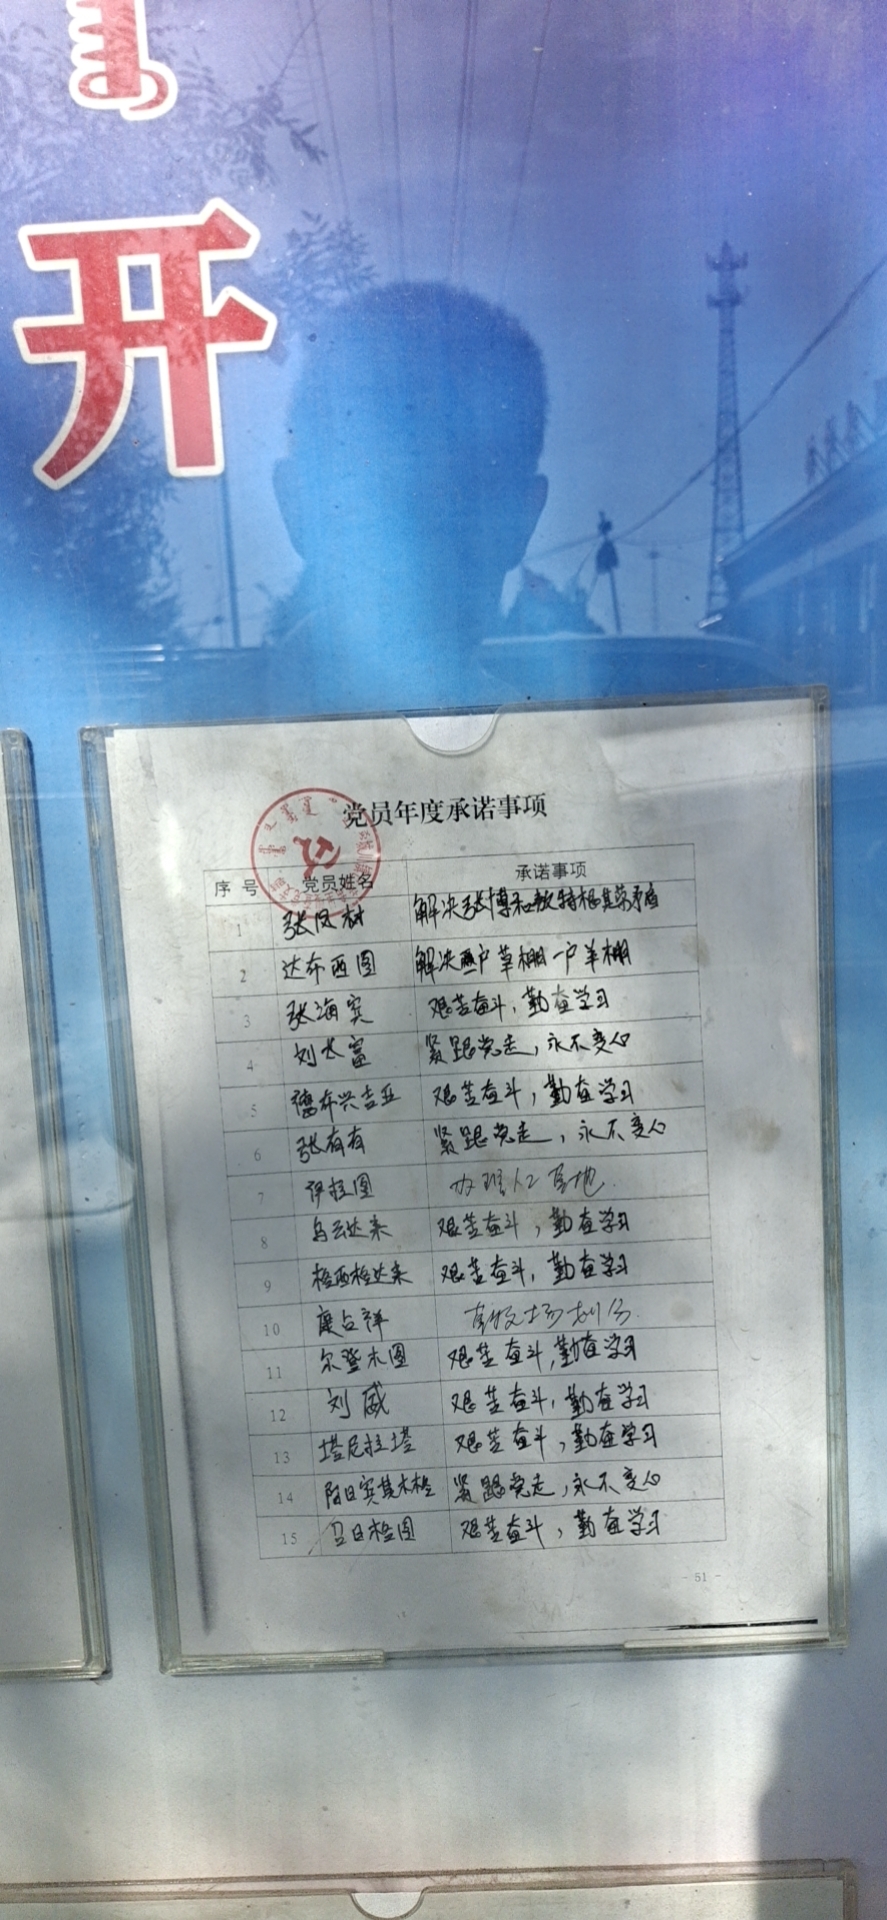 开
党员年度承诺事项
序号 党员姓名 承诺事项
1 张凤林 解决张博和敖特根其劳矛盾
2 达布西图 解决两户草棚一户羊棚
3 张海宾 艰苦奋斗,勤奋学习
4 刘长富 紧跟党走,永不变心
5 德布兴吉亚 艰苦奋斗,勤奋学习
6 张有有 紧跟党走,永不变心
7 伊拉图 办理人工草地
8 乌云达来 艰苦奋斗,勤奋学习
9 格西格达来 艰苦奋斗,勤奋学习
10 庞占祥 草牧场划分
11 尔登木图 艰苦奋斗,勤奋学习
12 刘威 艰苦奋斗,勤奋学习
13 塔尼拉塔 艰苦奋斗,勤奋学习
14 阿日宾其木格 紧跟党走,永不变心
15 召日格图 艰苦奋斗,勤奋学习
- 51 -